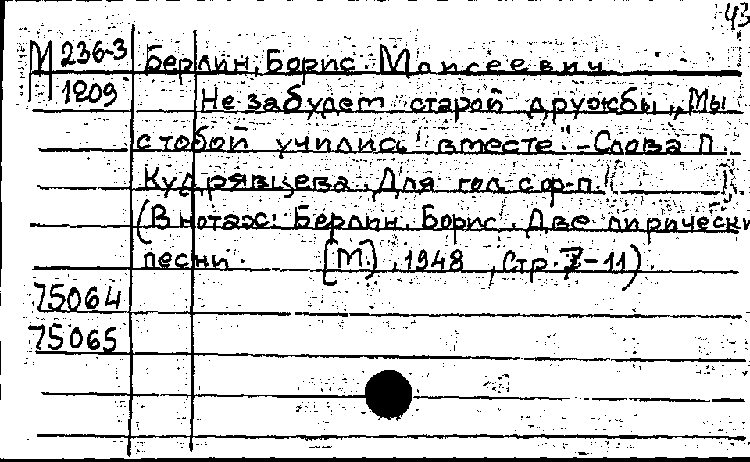 43
М 236-3 Берлин, Борис Моисеевич
1209 Не забудет старой дружбы „Мы
с тобой учились вместе". - Слова П.
Кудрявцева. Для гол. с ф-п.
(В нотах: Берлин, Борис. Две лирически
песни. [М.], 1948, стр. 7-11).
75064
75065